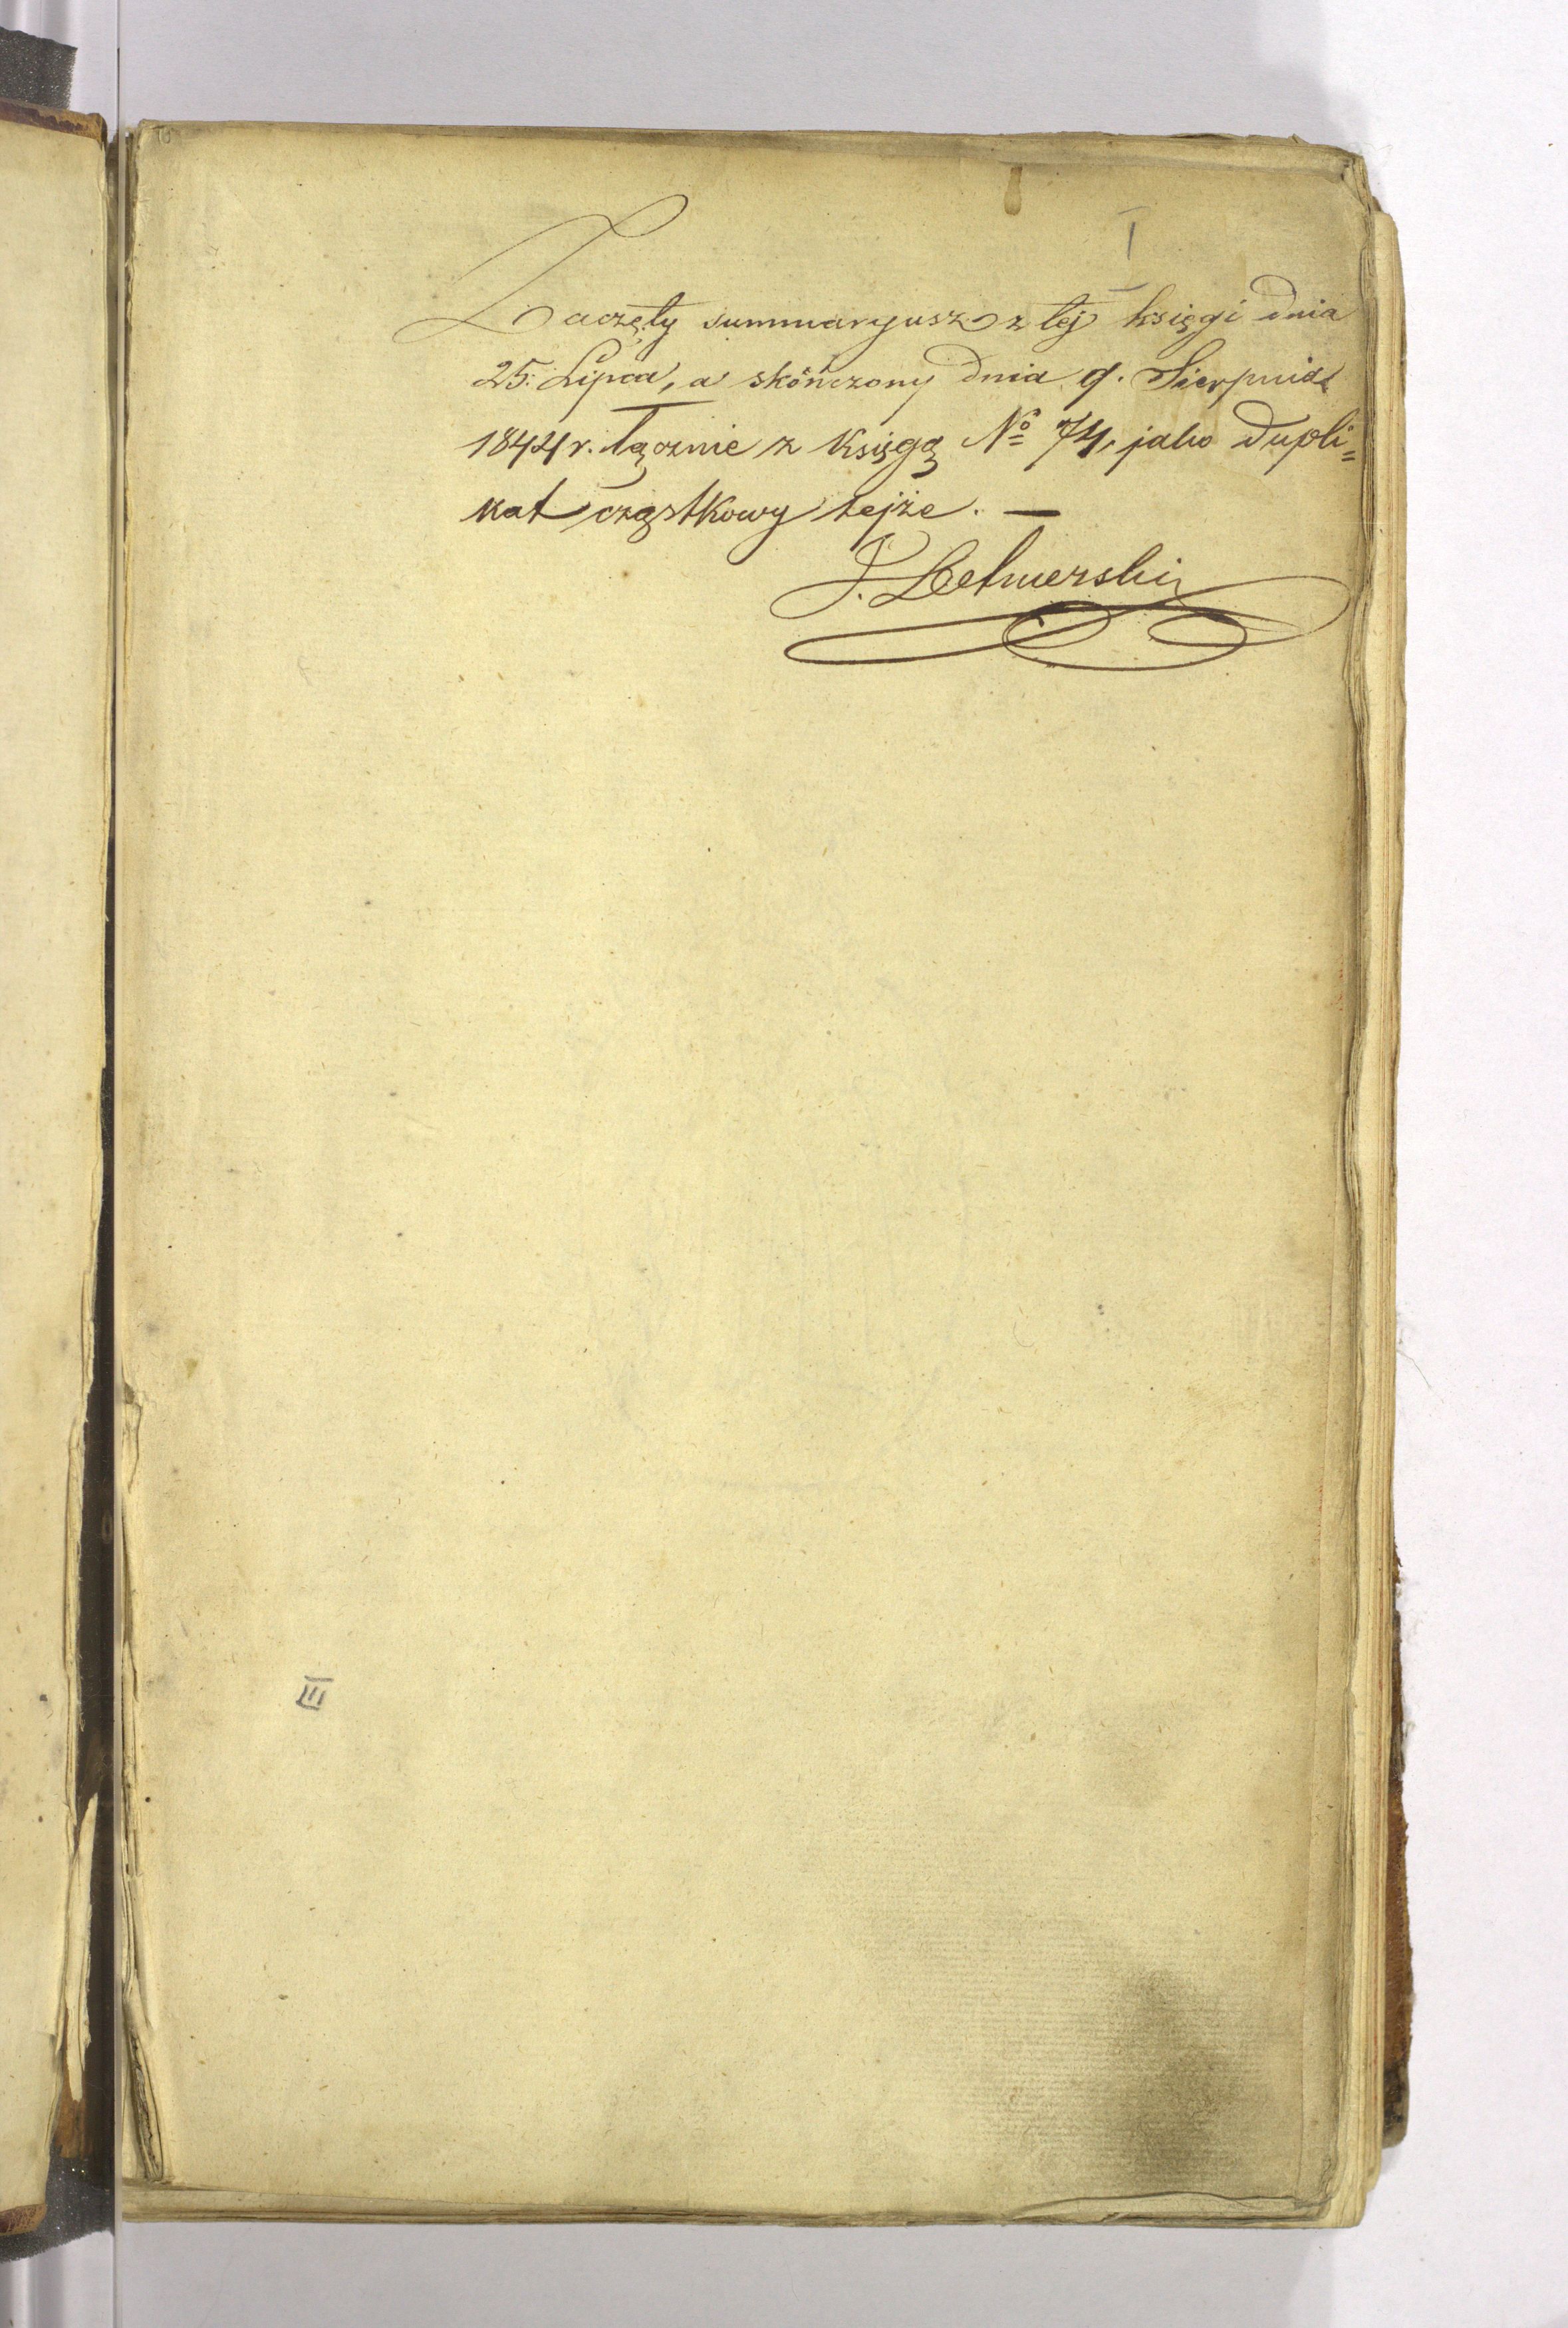 I
Zaczęty summaryusz z tej księgi dnia
25. Lipca, a skończony dnia 9. Sierpnia
1844 r. łącznie z księgą No 74, jako dupli=
kat cząstkowy tejże. —
III